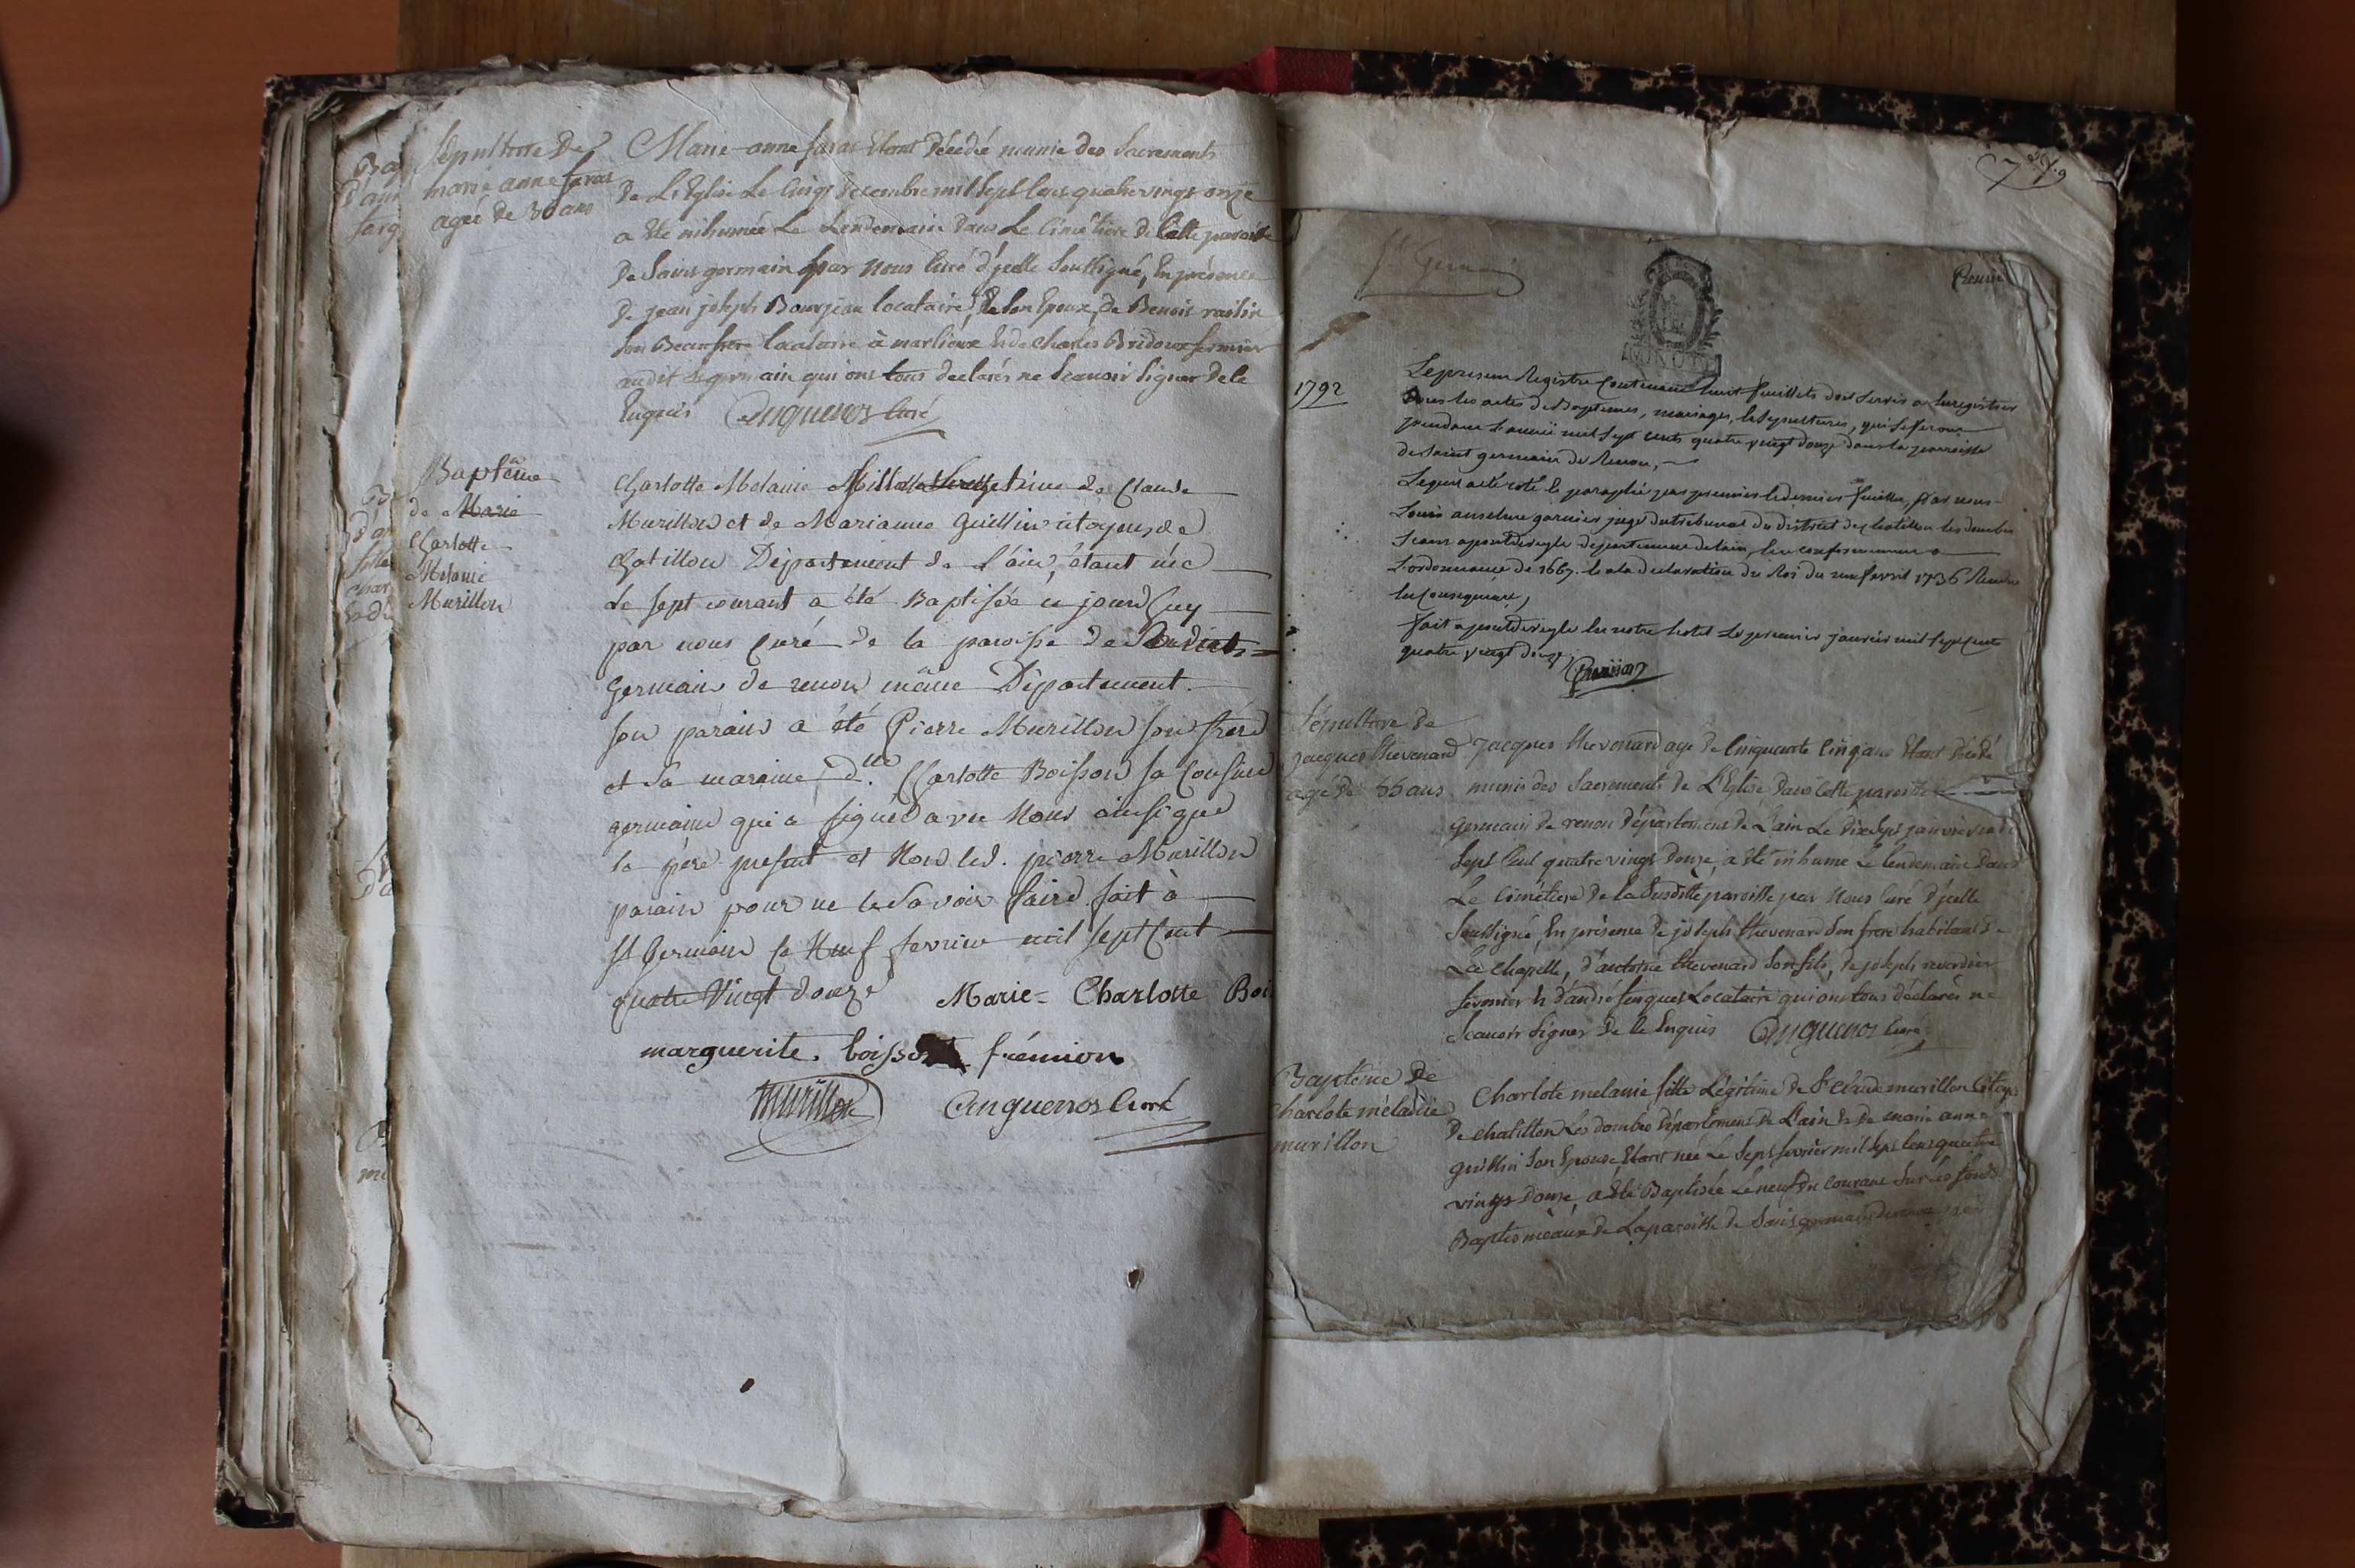 Sépulture De
marie anne faras
agée de 36 ans
Marie-anne faras Etant Décédé munie des Sacrements
De L'Eglise Le Cinq Decembre mil Sept Cens quatre vingt onze
a Eté inhumée Le Lendemain Dans Le Cimétière De Cette paroisse
De Saint germain par Nous Curé d'ycelle Soussigné, En présence
De jean joseph Bourjeau locataire, De son Epoux, De Benoit
Son Beaufrere locataire à marlieux Et de Charles Bridoux fermier
audit St germain qui ont tous declarés ne Scavoir Signer De ce
Enquis Anguenos Curé
Baptême
de Marie
Charlotte
Melanie
Murillon
Charlotte Melanie fille Légitime de Claude
Murillon et de Marianne Guillin citoyens de
Chatillon Département de L'ain, étant née
Le sept courant a été Baptisée ce jourd'huy
par nous Curé de la paroisse de
Germain de renon même Département.
son parain a été Pierre Murillon son frère
et sa maraine dlle Charlotte Boisson sa Cousine
germaine qui a signée avec Nous ainsi que
le père présent et Non led. pierre Murillon
parain pour ne le Savoir faire. fait à
St Germain Ce Neuf fevrier mil Sept Cent
quatre Vingt douze Marie-Charlotte Boi
marguerite. boisson frémion
Murillon Anguenos Curé
St Germain
1792
Le present Registre Contenant huit feuillets doit servir a Enregistrer
tous les actes de Baptemes, mariages, & Sepultures, qui Se feront
pendant L'année mil Sept cents quatre vingt douze dans la parroisse
de Saint germain de Renon,
Lequel a été coté & paraphé par premier & dernier feuillet, par nous
Louis anselme garnier juge du tribunal du district de Chatillon les dombes
Seant a pontdeveyle département de lain, en conformement a
L'ordonnance de 1667. & a la declaration du Roi du neuf avril 1736 Rendue
En Consequence,
fait a pontdeveyle En notre hotel Le premier janvier mil Sept cents
quatre vingt douze
Sépulture De
Jacques thevenard
agé de 55 ans
Jacques thevenard agé De Cinquante Cinq ans Etant Décédé
munis des Sacrements De L'Eglise Dans Cette paroisse
Germain De renon Département De L'ain Le Dix Sept janvier mil
Sept Cent quatre vingt Douze, a Eté inhumé Le lendemain Dans
Le Cimétière De la Susditte paroisse par Nous Curé D'ycelle
Soussigné, En présence De joseph thevenard Son frere habitant De
La chapelle, D'antoine thevenard Son fils, De joseph reverdier
fermier & D'andré fenquet Locataire qui ont tous déclarés ne
Scavoir Signer De ce Enquis Anguenos Curé
Baptême De
Charlote mélanie
murillon
Charlote melanie fille Légitime De Sr Claude murillon Citoyen
De chatillon Les dombes Département De L'ain & De marie anne
guillin Son Epouse, Etant née Le Sept fevrier mil Sept Cens quatre
vingts Douze, a Eté Baptisée Le neuf Du Courant Sur Les fonds
Baptismeaux De La paroisse De Saint germain De renon